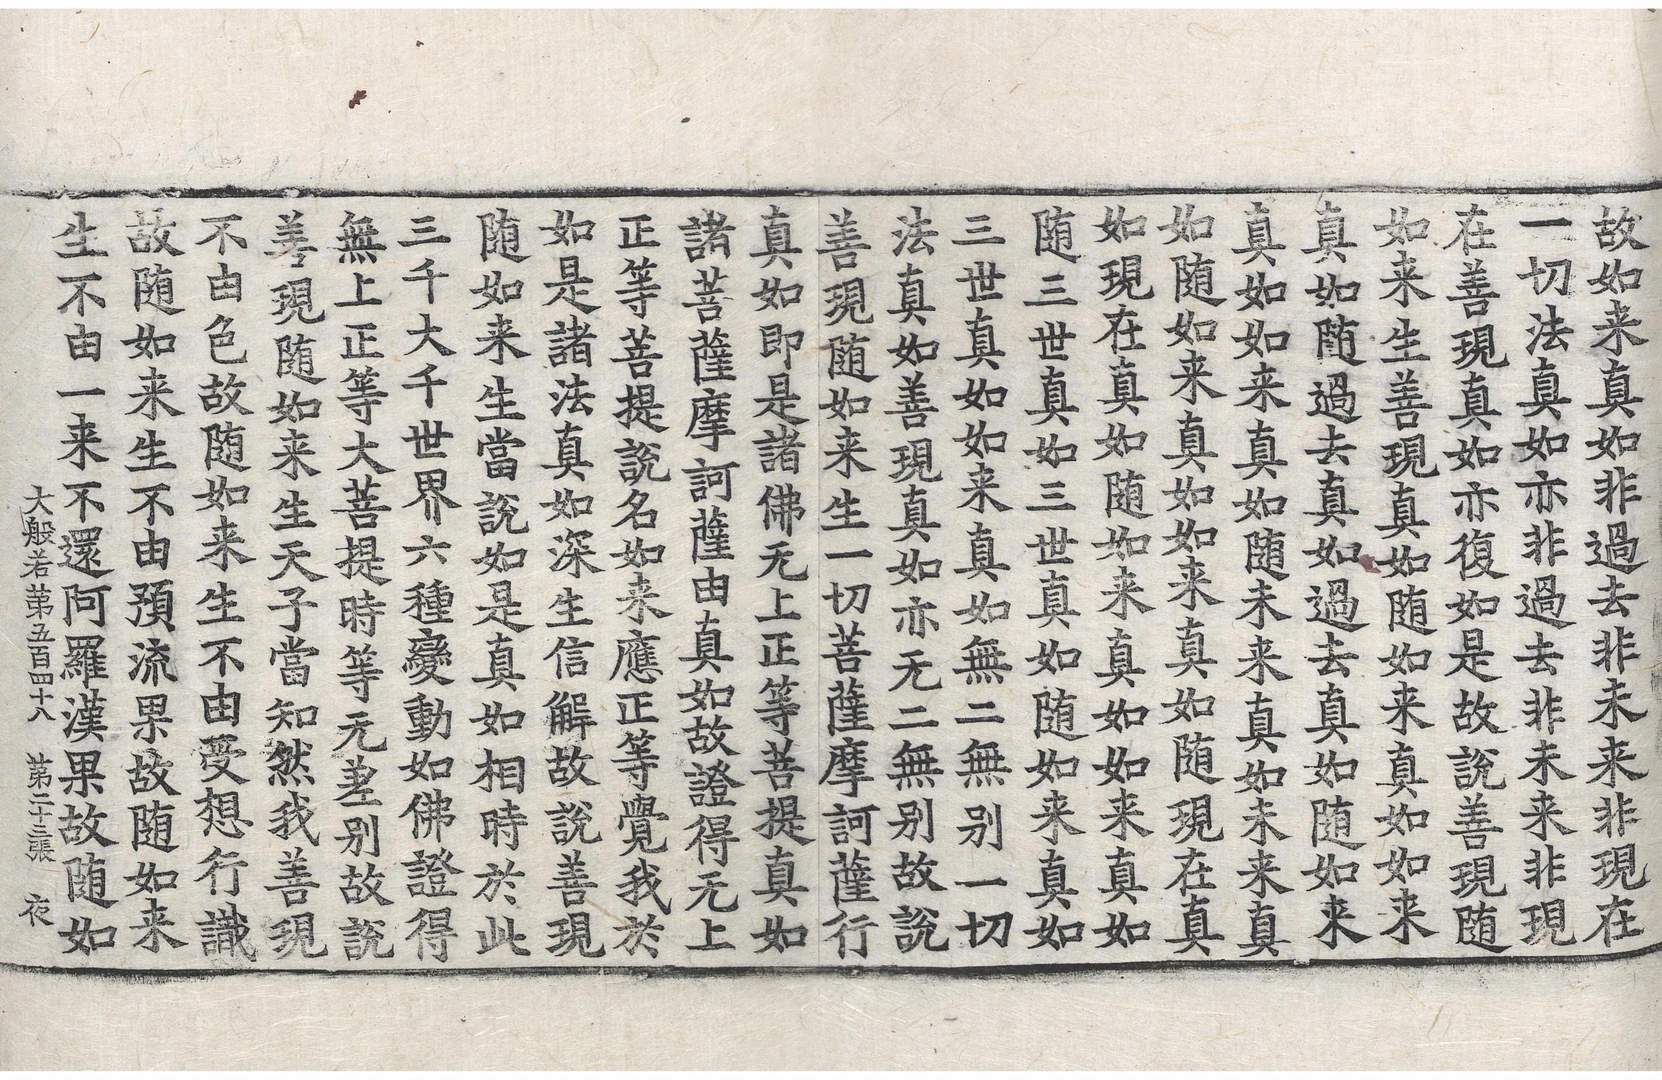 故如来真如非過去非未来非現在
一切法真如亦非過去非未来非現
在善現真如亦復如是故說善現随
如来生善現真如随如来真如如来
真如随過去真如過去真如随如来
真如如来真如随未来真如未来真
如随如来真如如来真如随現在真
如現在真如随如来真如如来真如
随三世真如三世真如随如来真如
三世真如如来真如無二無别一切
法真如善現真如亦无二無别故說
善現随如来生一切菩薩摩訶薩行
真如即是諸佛无上正等菩提真如
諸菩薩摩訶薩由真如故證得无上
正等菩提說名如来應正等覺我於
如是諸法真如深生信解故說善現
随如来生當說如是真如相時於此
三千大千世界六種變動如佛證得
無上正等大菩提時等无差别故說
善現随如来生天子當知然我善現
不由色故随如来生不由受想行識
故随如来生不由預流果故随如来
生不由一来不還阿羅漢果故随如
大般若第五百四十八　第二十三張　夜